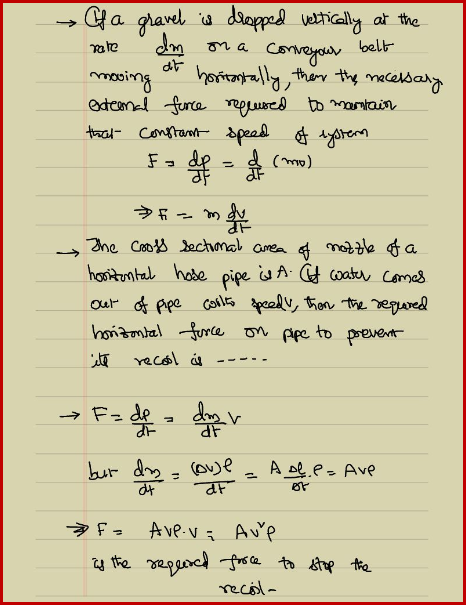 → If a gravel is dropped vertically at the
rate dm/dt on a conveyour belt
moving horizontally, then the necessary
external force required to maintain
that constant speed of system
F = dp/dt = d/dt (mv)
⇒ F = m dv/dt
→ The cross sectional area of nozzle of a
horizontal hose pipe is A. If water comes
out of pipe with speed v, then the required
horizontal force on pipe to prevent
its recoil is -----
→ F = dp/dt = dm/dt v
but dm/dt = (Δv)ρ/dt = A Δl/Δt . ρ = Avρ
⇒ F = Avρ.v = Av²ρ
is the required force to stop the
recoil-